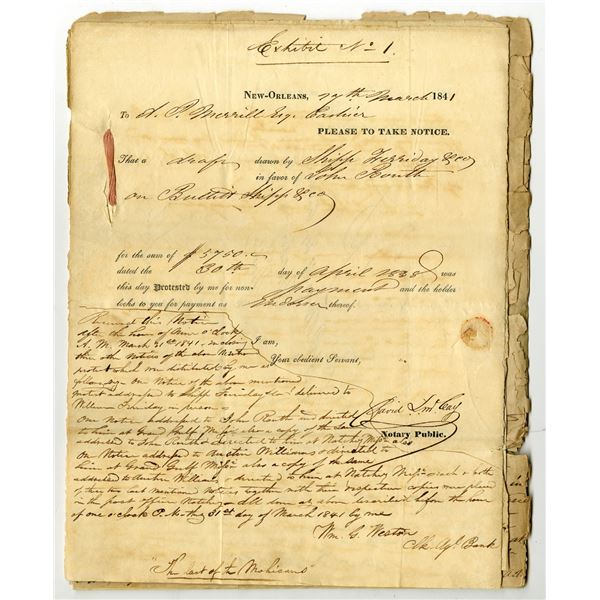 Exhibit No 1.
New-Orleans, 27th March 1841
To A. P. Merrill Esq. Cashier
PLEASE TO TAKE NOTICE.
That a draft drawn by Shipp Ferriday & co
in favor of John Routh
on Bullitt Shipp & co
for the sum of $5750
dated the 30th day of April 1838 was
this day Protested by me for non-payment and the holder
looks to you for payment as Endorser thereof.
Received this Notice
after the hour of o'clock
A. M. March 31st 1841, inclosing I am,
three other Notices of the above Mentd Your obedient Servant,
protest which was distributed by me as
following. One Notice of the above mentioned
protest addressed to Shipp Ferriday & Co delivered to
William Ferriday in person
One Notice addressed to John Routh and directed David
to him at Grand Gulf Miss also a copy of the same Notary Public.
addressed to John Routh & directed to him at Natchez Miss also
One Notice addressed to Austin Williams & directed to
him at Grand Gulf Miss also a copy of the same
addressed to Austin Williams & directed to him at Natchez Miss each & both
of these two last mentioned Notices together with their respective copies were placed
in the post office Natchez described before the hour
of one o'clock P. M. the 31st day of March 1841 by me
Wm. G. Weston
Clk. Agl. Bank
"The last of the Mohicans"